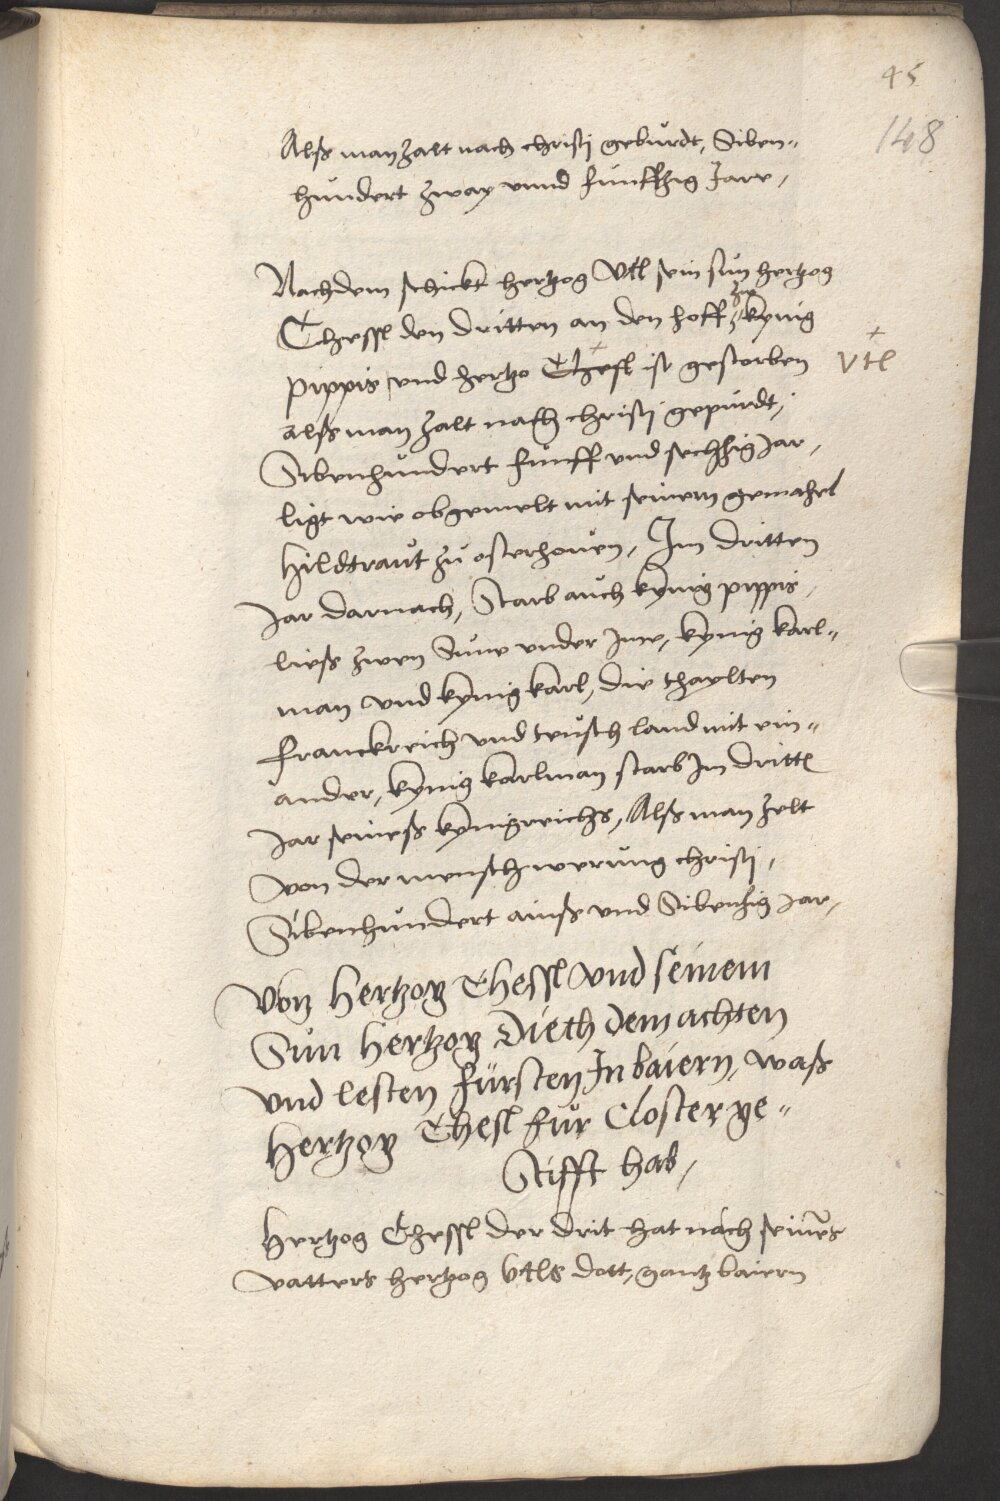 45
148
Alß man zalt nach christj gebürdt, Siben-
hundert zway vnnd fünffzig Jare,
Nachdem schickt hertzog Vtl sein sun hertzog
Thessl den dritten an den hoff zu kynig
pippis vnd hertzo Thesl ist gestorben
Vtl
alß man zalt nach christj gepurdt,
Sibenhundert fünff vnd sechzig Jar,
ligt wie obgemelt mit seinem gemahel
Hildtraut zu osterhouen, Im dritten
Jar darnach, Starb auch kynig pippis,
ließ zwen Süne vnder Ime, kynig karl-
man vnd kynig karl, die thaylten
Franckreich vnd teusch land mit ein-
ander, kynig karlman starb Im dritten
Jar seineß kynigreichs, Alß man zelt
von der menschwerung christj,
Sibenhundert ainß vnd Sibenzig Jar,
Von Hertzog Thessl vnd seinem
Sun Hertzog Dieth dem achten
vnd lesten Fürsten In baiern, waß
Hertzog Thesl für Closter ge-
stifft hab,
Hertzog Thessl der drit hat nach seines
vatters hertzog Vtls dott, gantz baiern